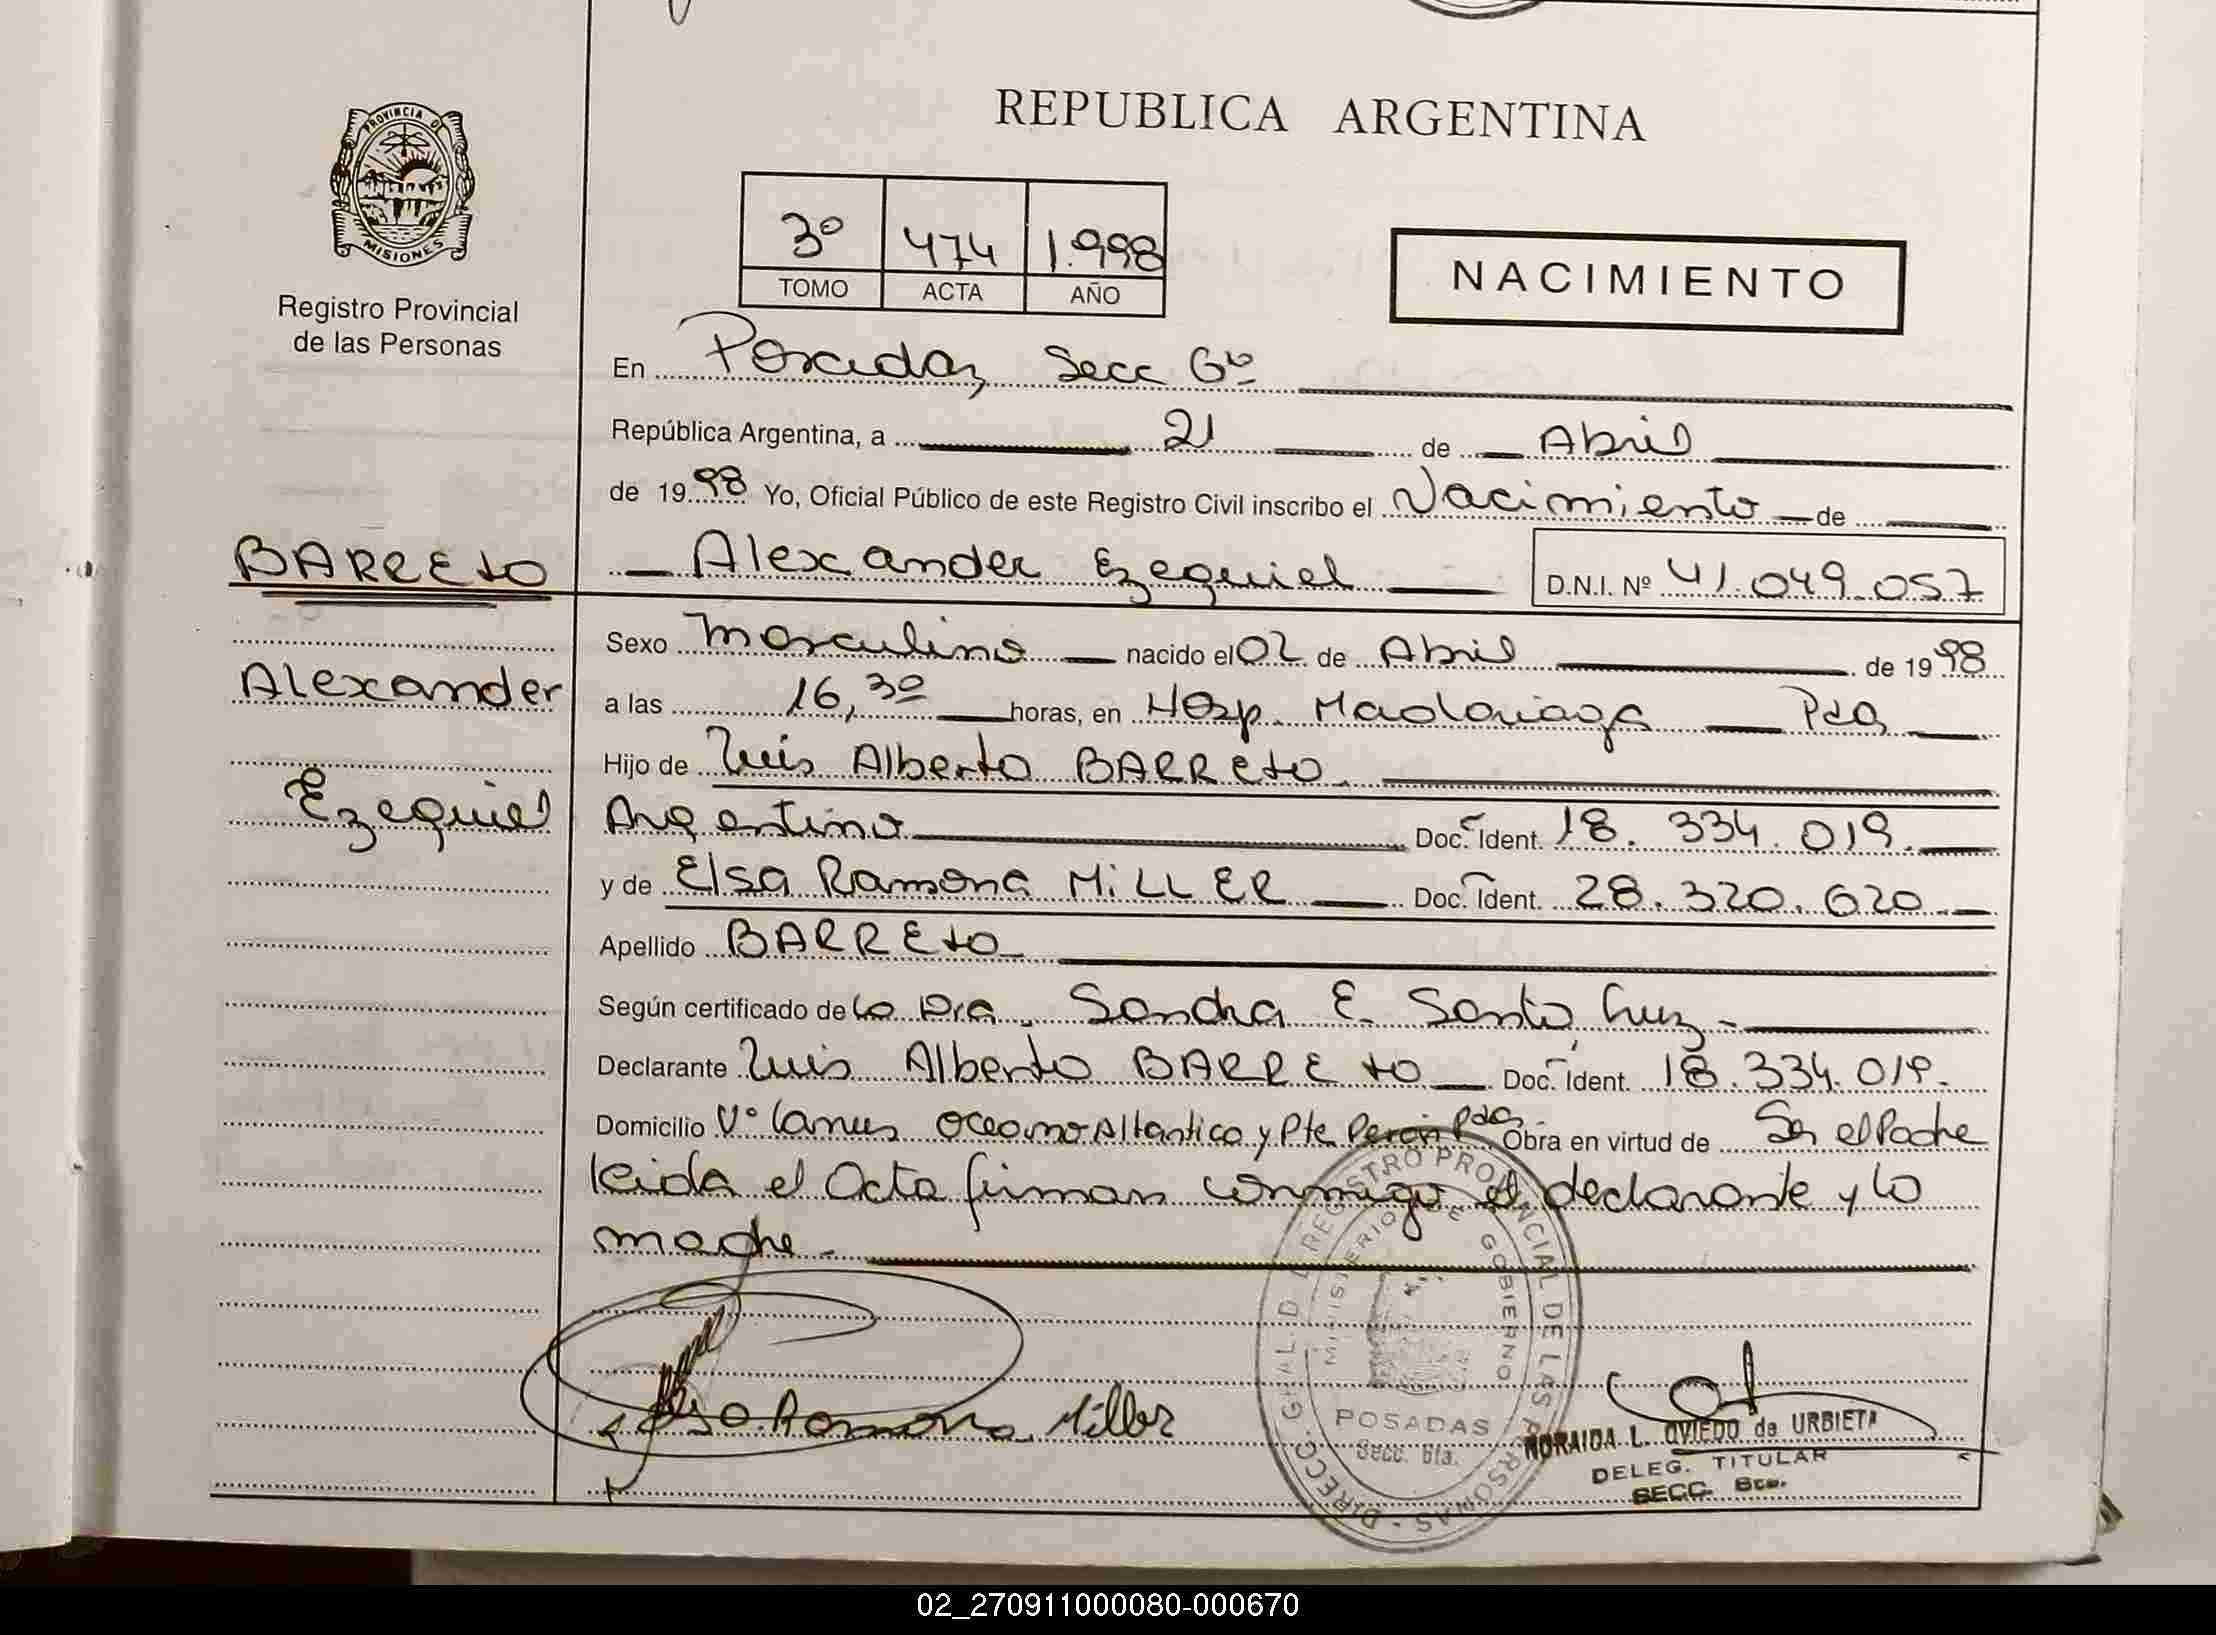 REPUBLICA ARGENTINA
PROVINCIA D
MISIONES
Registro Provincial
de las Personas
3º 474 1.998
TOMO ACTA AÑO
NACIMIENTO
En Posadas, Secc 6ta
República Argentina, a 21 de Abril
de 1998 Yo, Oficial Público de este Registro Civil inscribo el Nacimiento de
BARRETO
Alexander Ezequiel D.N.I. Nº 41.049.057
Sexo Masculino nacido el 02 de Abril de 1998
Alexander
a las 16,30 horas, en Hosp. Madariaga Pdas
Hijo de Luis Alberto BARRETO.
Ezequiel
Argentino Doc. Ident. 18.334.019.
y de Elsa Ramona MiLLER Doc. Ident. 28.320.620.
Apellido BARRETO
Según certificado de la Dra. Sandra E. Santa Cruz
Declarante Luis Alberto BARRETO Doc. Ident. 18.334.019.
Domicilio Vº Lanus Oceano Atlantico y Pte Peron Pdas Obra en virtud de Ser el Padre
leida el Acta firman conmigo el declarante y la
madre.
Ramona Miller
DIRECC. GRAL. DEL REGISTRO PROVINCIAL DE LAS PERSONAS
MINISTERIO DE GOBIERNO
POSADAS
Secc. 6ta.
NORAIDA L. OVIEDO de URBIETA
DELEG. TITULAR
SECC. 6ta.
02_270911000080-000670